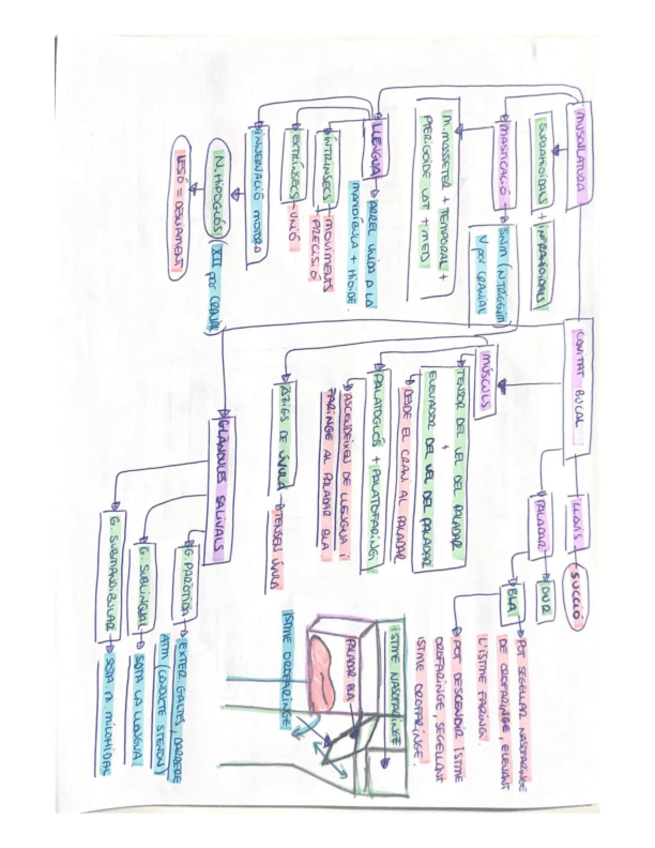 CAVITAT BUCAL
MUSCULATURA
SUPRAHIOÏDALS + INFRAHIOÏDALS
MASTICACIÓ → SNM (N TRIGEMIN
V PAR CRANIAL
M. MASSETER + TEMPORAL +
PTERIGOIDE LAT + MED
LLENGUA → ARREL UNIDA A LA
MANDÍBULA + HIOIDE.
INTRÍNSECS → MOVIMENTS
PRECISIÓ
EXTRÍNSECS → UNIÓ
INNERVACIÓ MOTORA
N. HIPOGLÒS (XII PAR CRANIAL
LESIÓ = DESVIAMENT
MÚSCULS
TENSOR DEL VEL DEL PALADAR
+
ELEVADOR DEL VEL DEL PALADAR
DESDE EL CRANI AL PALADAR
PALATOGLÒS + PALATOFARINGI
ASCENDEIXEN DE LLENGUA I
FARINGE AL PALADAR BLA
ÀZIGS DE ÚVULA → TENSEN ÚVULA
GLÀNDULES SALIVALS
G. PARÒTIDA → EXTER. GALTES, DARRERE
ATM (CONDUCTE STENON)
G. SUBLINGUAL → SOTA LA LLENGUA
G. SUBMANDIBULAR → SOTA M. MILOHIDAL
LLAVIS → SUCCIÓ
PALADAR
DUR
BLA
POT SEGELLAR NASOFARINGE
DE OROFARINGE, ELEVANT
L'ISTME FARINGI.
POT DESCENDIR ISTME
OROFARINGE, SEGELLANT
ISTME OROFARINGE.
ISTME NASOFARINGE
PALADAR BLA
ISTME OROFARINGE